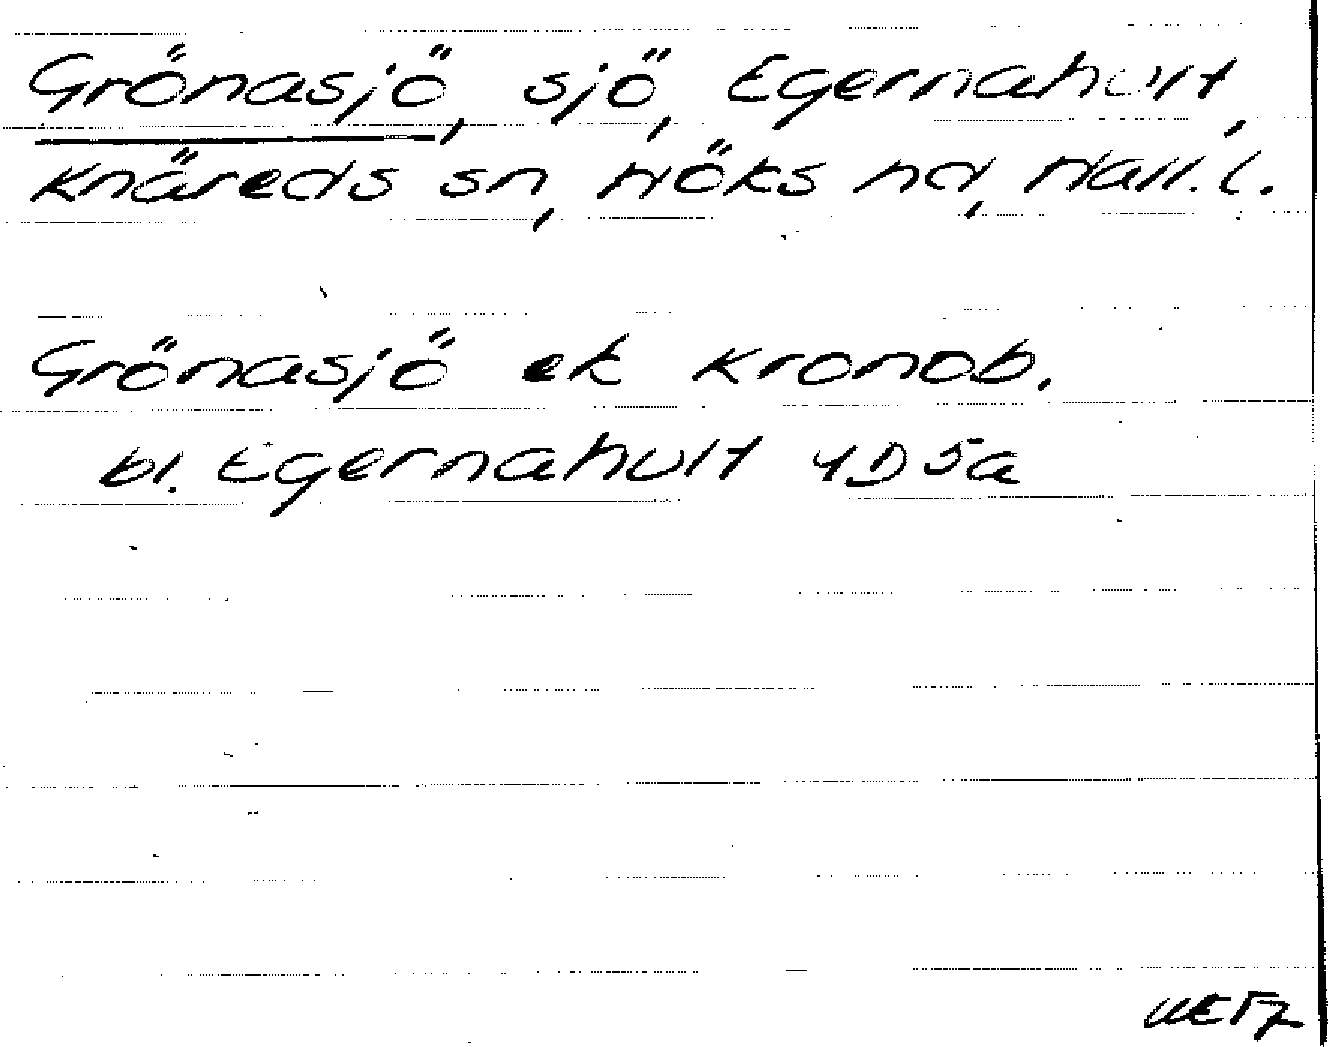 Grönasjö, sjö, Egernahult,
Knäreds sn, Höks hd, Hall. l.
Grönasjö ek Kronob.
bl. Egernahult 4D 5a